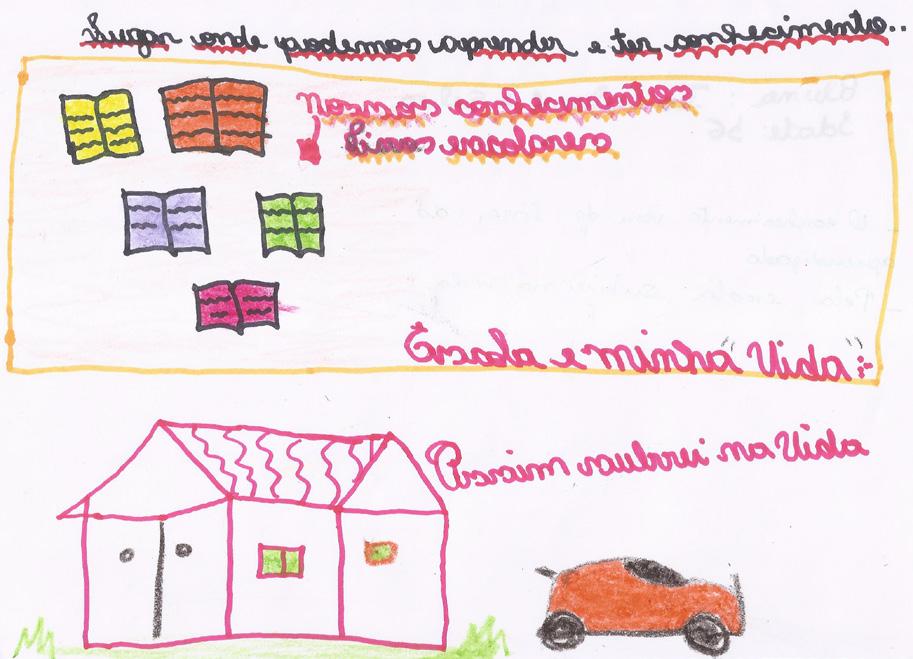 Lugar onde podemos aprender e ter conhecimento...
Nossos conhecimentos
Livros escolares
Escola e minha "Vida"
Assim subirei na Vida